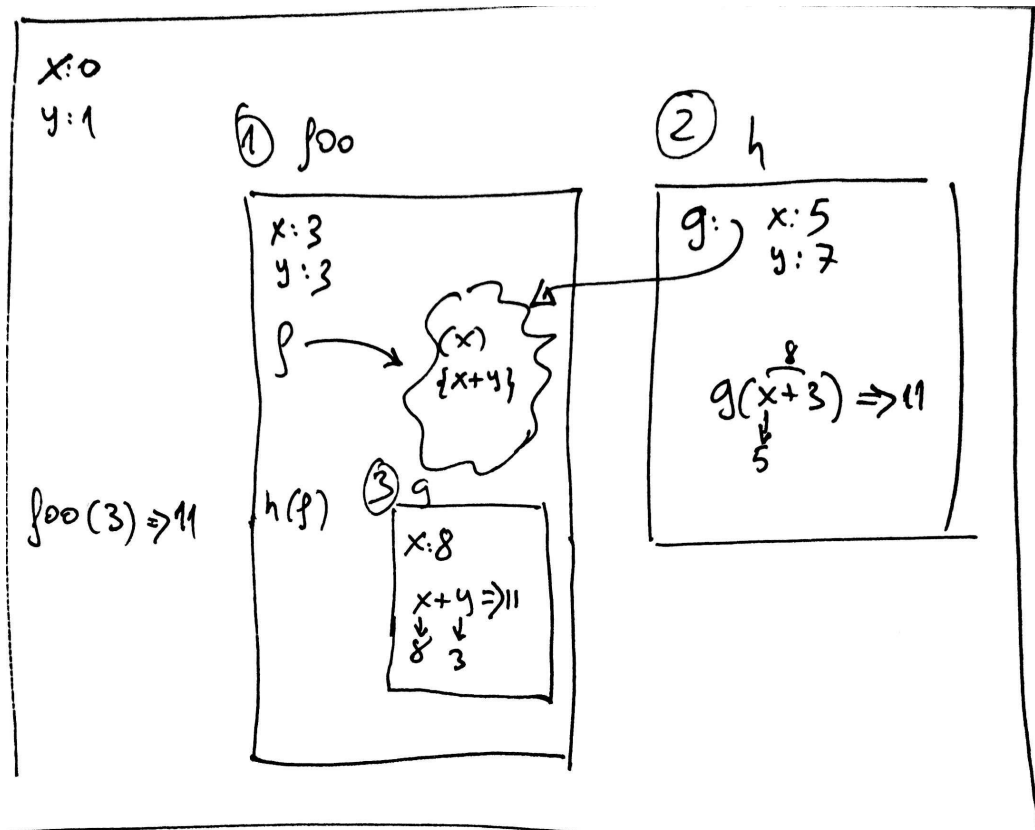 x:0
y:1
① foo
x:3
y:3
f
(x)
{x+y}
h(f)
foo(3) => 11
③ g
x:8
x+y => 11
8 3
② h
g: x:5
y:7
8
g(x+3) => 11
5